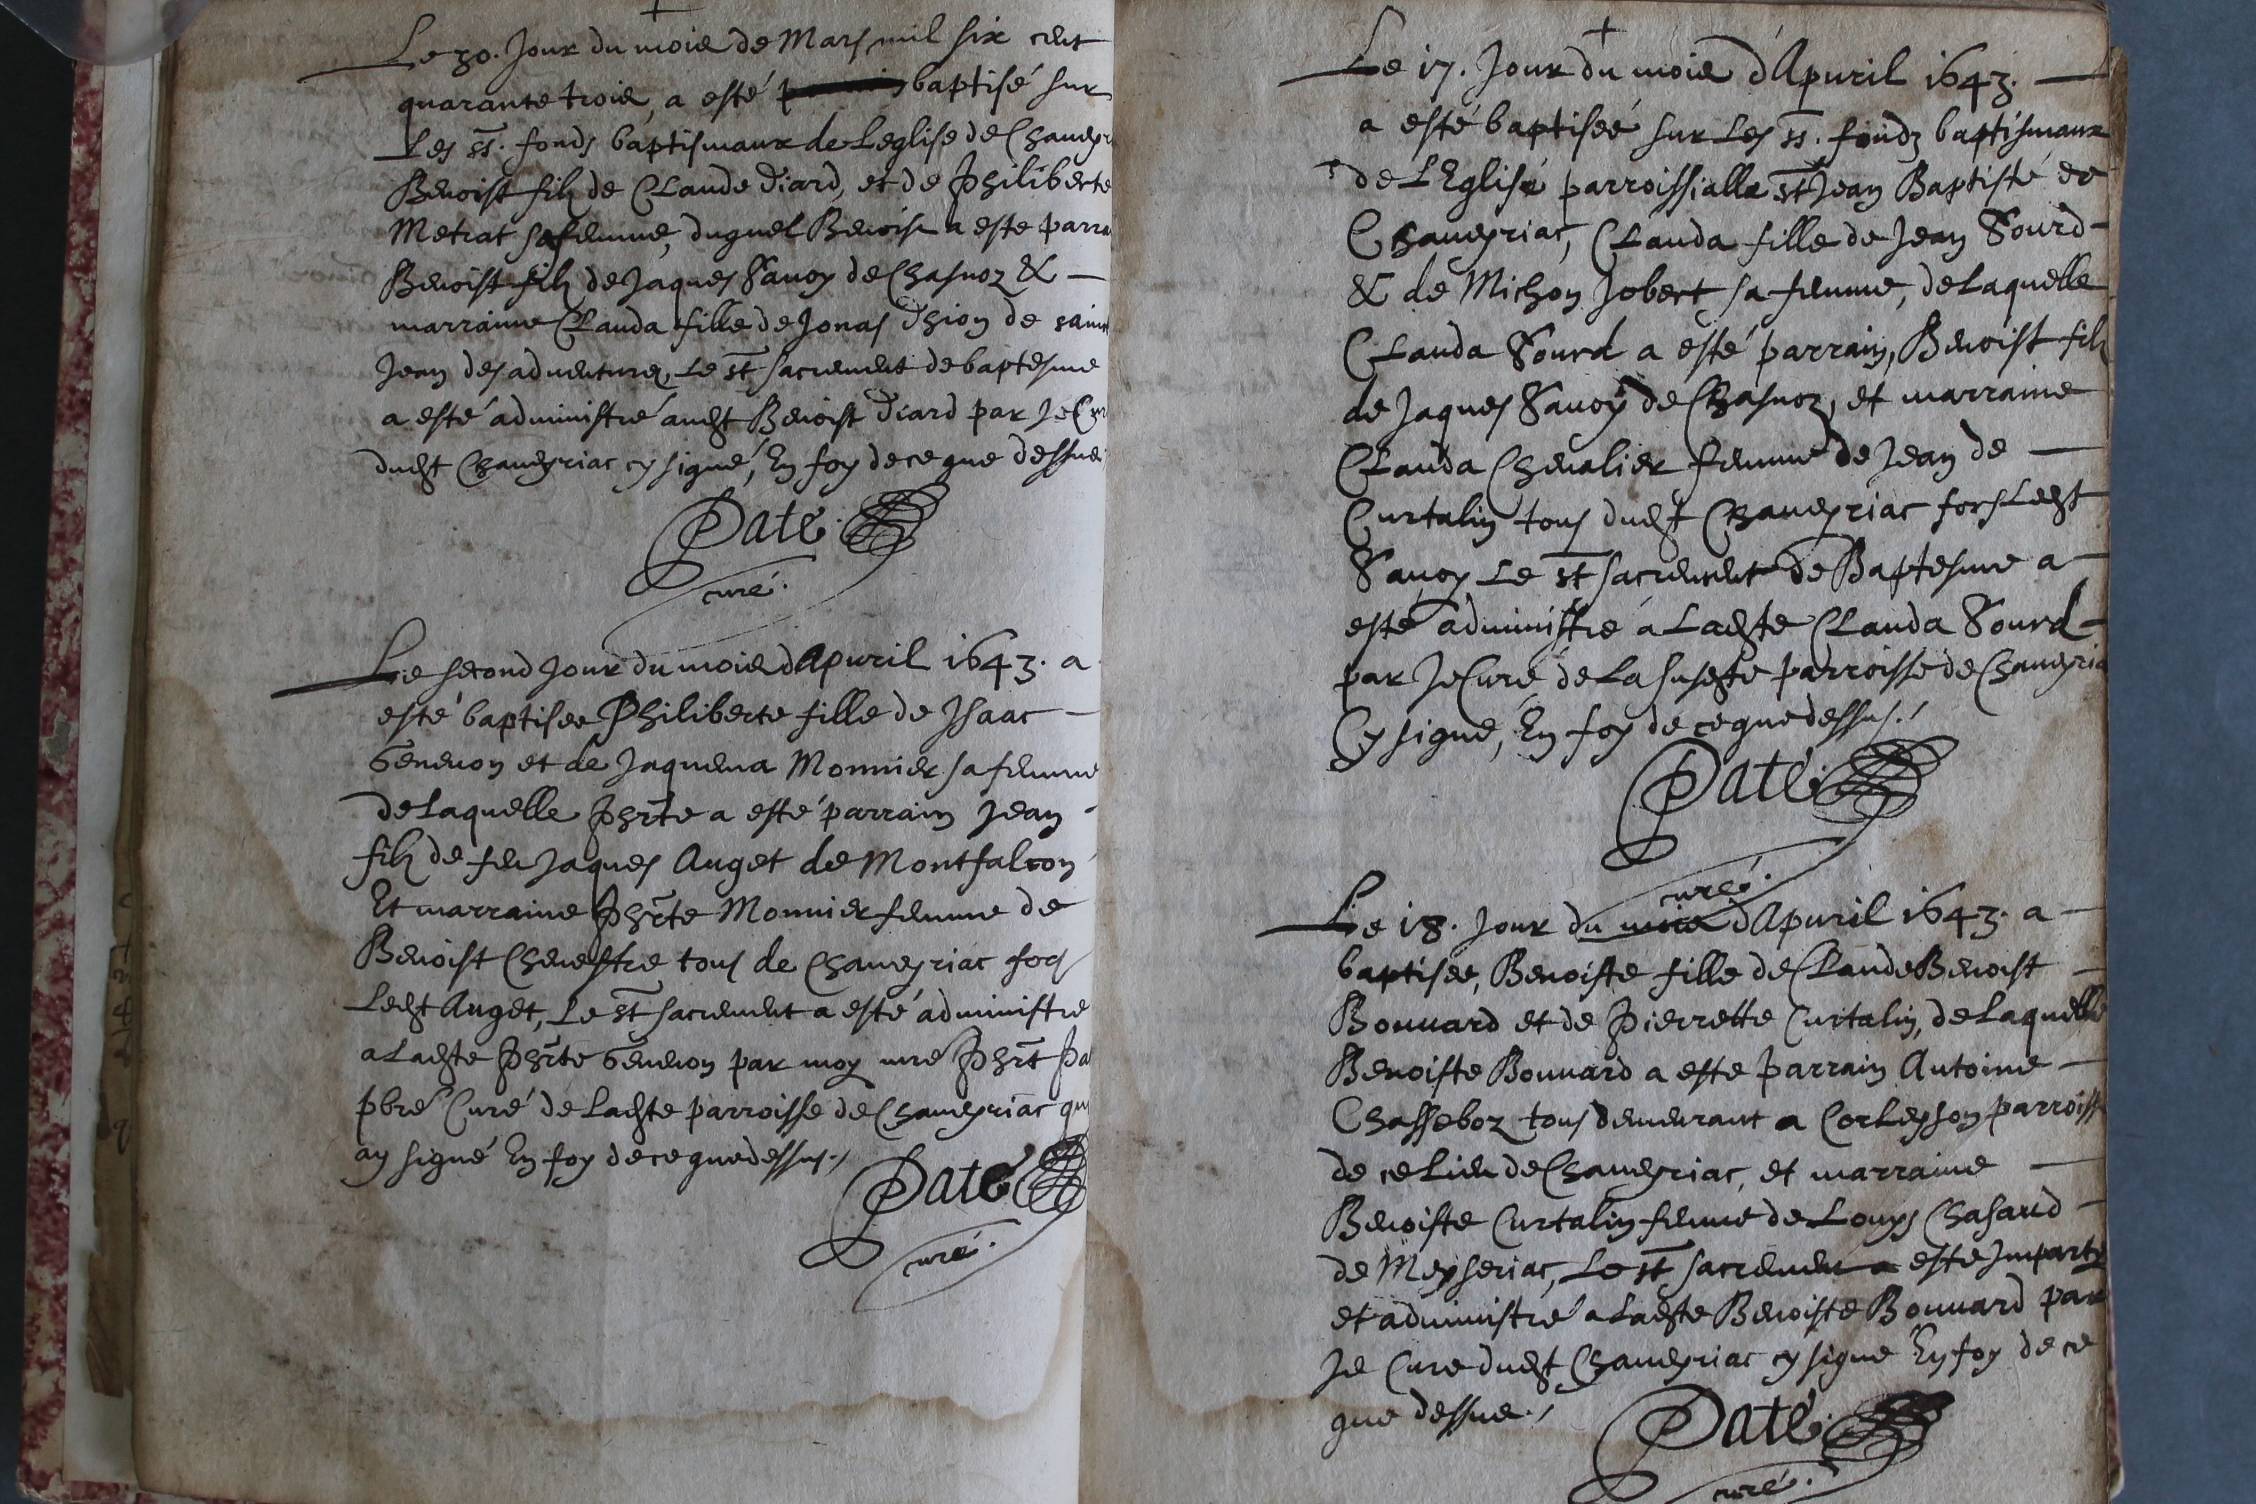 Le 30. Jour du mois de Mars mil six cent
quarante trois, a esté baptisé sur
Les ss. fonds baptismaux de Leglise de Chaveyr
Benoist filz de Claude Diard, et de Philiberte
Metrat sa femme, duquel Benoist a este parra
Benoist filz de Jaques Savoy de Chasnoz &
marraine Clauda fille de Jonas de saint
Jean des adventures, Le st sacrement de baptesme
a esté administré audt Benoist Diard par Je Cur
dudt Chaveyriac cy signé, En foy de ce que dessus
Paté
curé.
Le second Jour du mois d'Apvril 1643. a
esté baptisee Philiberte fille de Isaac
Genevon et de Jaquema Monnier sa femme
de Laquelle Phrte a esté parrain Jean
filz de feu Jaques Auget de Montfalcon
Et marraine Phrte Monnier femme de
Benoist Chenestre tous de Chaveyriac fors
Ledt Auget, Le st sacrement a esté administre
a Ladte Phrte Genevon par moy mre Phrt Pa
pbre Curé de Ladte parroisse de Chaveyriac qui
ay signé En foy de ce que dessus./
Paté
curé.
Le 17. Jour du mois d'Apvril 1643.
a esté baptiseé sur Les ss. fondz baptismaux
de L'Eglise parroissialle st Jean Baptiste de
Chaveyriac, Clauda fille de Jean Sourd
& de Michon Jobert sa femme, de Laquelle
Clauda Sourd a esté parrain, Benoist filz
de Jaques Savoy de Chasnoz, et marraine
Clauda Chevalier femme de Jean de
Curtalin tous dudt Chaveyriac fors Ledt
Savoy Le st sacrement de Baptesme a
esté administré a Ladte Clauda Sourd
par Je Curé de La susdte parroisse de Chaveyria
Cy signé, En foy de ce que dessus./
Paté
curé.
Le 18. Jour du mois d'Apvril 1643. a
baptisée, Benoiste fille de Claude Benoist
Bouvard et de Pierrette Curtalin, de Laquelle
Benoiste Bouvard a este parrain Antoine
Chasseboz tous demeurant a Corleyson parroiss
de ce Lieu de Chaveyriac, et marraine
Benoiste Curtalin femme de Louys Chasaud
de Meyseriac, Le st sacrement a este Imparty
et administré a Ladte Benoiste Bouvard par
Je Cure dudt Chaveyriac cy signe En foy de ce
que dessus./
Paté
curé.